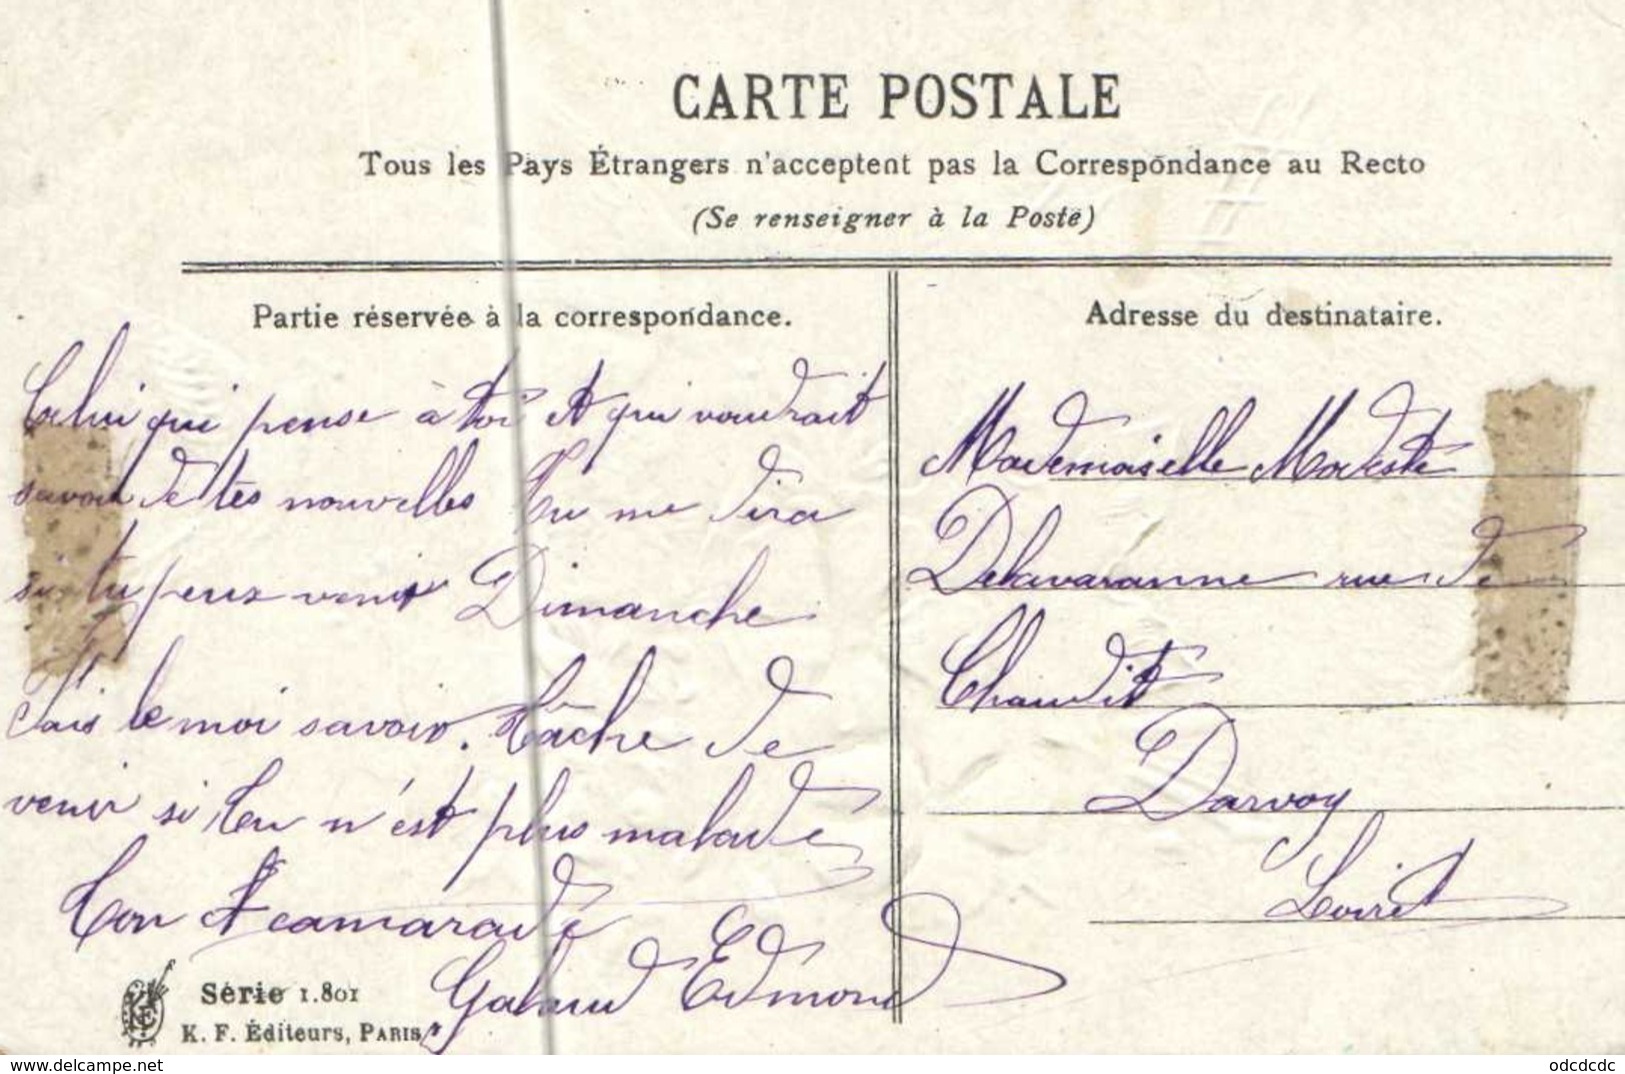 CARTE POSTALE
Tous les Pays Étrangers n'acceptent pas la Correspondance au Recto
(Se renseigner à la Poste)
Partie réservée à la correspondance.
Celui qui pense à toi et qui voudrait
savoir de tes nouvelles Tu me dira
si tu peux venir Dimanche
Fais le moi savoir. Tâche de
venir si tu n'est plus malade
Ton camarade
Edmond
Série 1.801
K. F. Éditeurs, PARIS
Adresse du destinataire.
Mademoiselle Modeste
Delavaranne rue de
Chaudit
Darvoy
Loiret
www.delcampe.net
odcdcdc